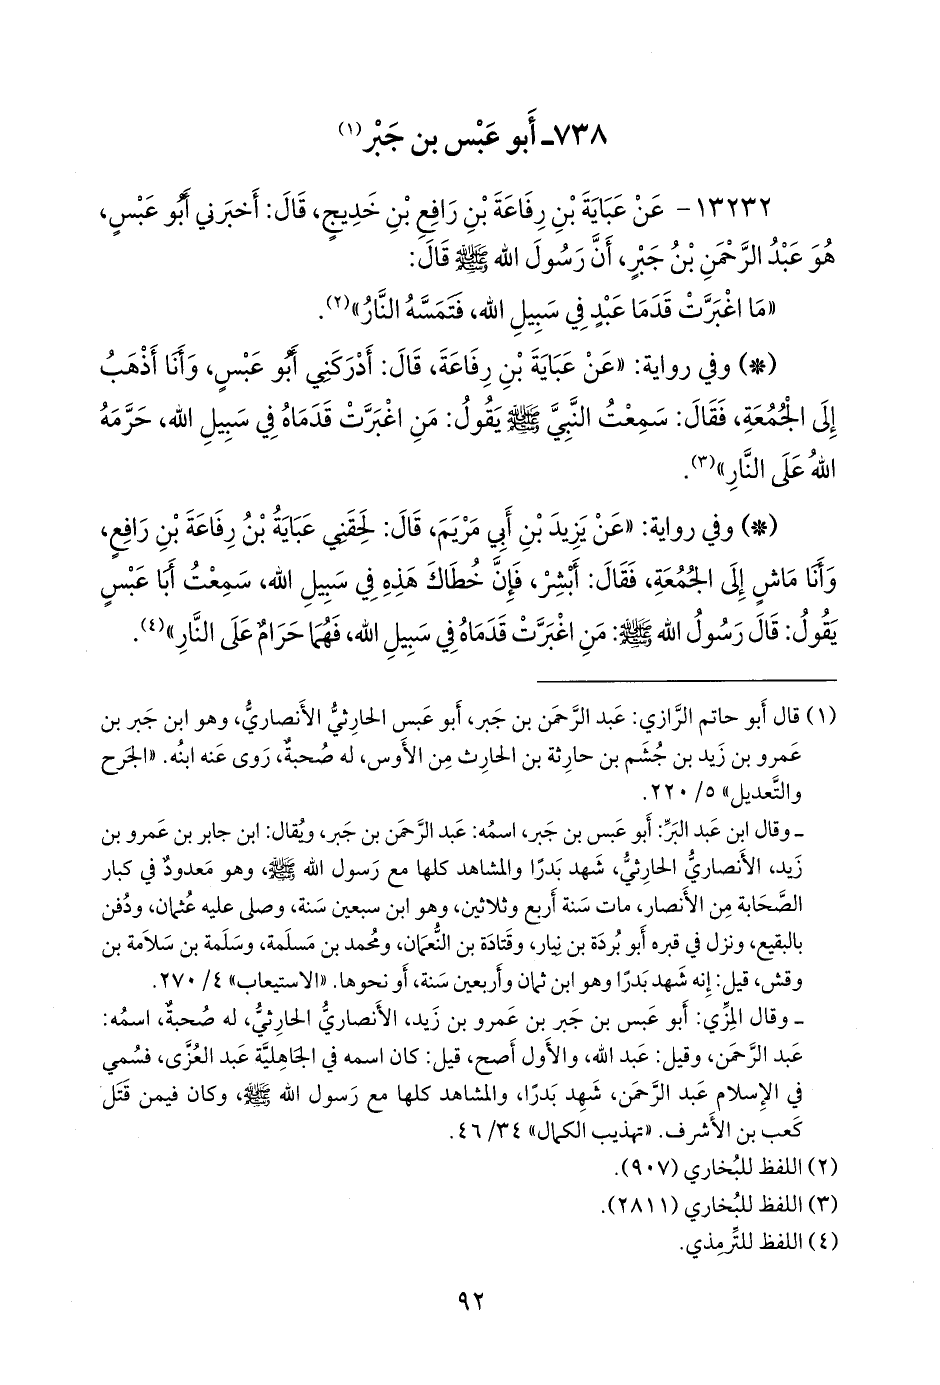 ٧٣٨ـ أَبو عَبْس بن جَبْر (١)
١٣٢٣٢ - عَنْ عَبَايَةَ بْنِ رِفَاعَةَ بْنِ رَافِعِ بْنِ خَدِيجٍ، قَالَ: أَخبَرني أَبُو عَبْسٍ،
هُوَ عَبْدُ الرَّحْمَنِ بْنُ جَبْرٍ، أَنَّ رَسُولَ الله ﷺ قَالَ:
«مَا اغْبَرَّتْ قَدَمَا عَبْدٍ فِي سَبِيلِ الله، فَتَمَسَّهُ النَّارُ»(٢).
(*) وفي رواية: «عَنْ عَبَايَةَ بْنِ رِفَاعَةَ، قَالَ: أَدْرَكَنِي أَبُو عَبْسٍ، وَأَنَا أَذْهَبُ
إِلَى الْجُمُعَةِ، فَقَالَ: سَمِعْتُ النَّبِيَّ ﷺ يَقُولُ: مَنِ اغْبَرَّتْ قَدَمَاهُ فِي سَبِيلِ الله، حَرَّمَهُ
اللهُ عَلَى النَّارِ»(٣).
(*) وفي رواية: «عَنْ يَزِيدَ بْنِ أَبِي مَرْيَمَ، قَالَ: لَحِقَنِي عَبَايَةُ بْنُ رِفَاعَةَ بْنِ رَافِعٍ،
وَأَنَا مَاشٍ إِلَى الجُمُعَةِ، فَقَالَ: أَبْشِرْ، فَإِنَّ خُطَاكَ هَذِهِ فِي سَبِيلِ الله، سَمِعْتُ أَبَا عَبْسٍ
يَقُولُ: قَالَ رَسُولُ الله ﷺ: مَنِ اغْبَرَّتْ قَدَمَاهُ فِي سَبِيلِ الله، فَهُمَا حَرَامٌ عَلَى النَّارِ»(٤).
(١) قال أَبو حاتم الرَّازي: عَبد الرَّحمَن بن جَبر، أَبو عَبس الحارثيُّ الأَنصاريُّ، وهو ابن جَبر بن
عَمرو بن زَيد بن جُشَم بن حارثة بن الحارث مِن الأَوس، له صُحبةٌ، رَوى عَنه ابنُه. «الجَرح
والتَّعديل» ٥/ ٢٢٠.
ـ وقال ابن عَبد البَرِّ: أَبو عَبس بن جَبر، اسمُه: عَبد الرَّحمَن بن جَبر، ويُقال: ابن جابر بن عَمرو بن
زَيد، الأَنصاريُّ الحارثيُّ، شَهد بَدرًا والمشاهد كلها مع رَسول الله ﷺ، وهو مَعدودٌ في كبار
الصَّحَابة مِن الأَنصار، مات سَنة أَربع وثلاثين، وهو ابن سبعين سَنة، وصلى عليه عُثمان، ودُفن
بالبقيع، ونزل في قبره أَبو بُردَة بن نِيار، وقَتادَة بن النُّعمان، ومُحمد بن مَسلَمة، وسَلَمة بن سَلاَمة بن
وقش، قيل: إِنه شَهد بَدرًا وهو ابن ثمان وأَربعين سَنة، أَو نحوها. «الاستيعاب» ٤/ ٢٧٠.
ـ وقال المِزِّي: أَبو عَبس بن جَبر بن عَمرو بن زَيد، الأَنصاريُّ الحارثيُّ، له صُحبةٌ، اسمُه:
عَبد الرَّحمَن، وقيل: عَبد الله، والأَول أَصح، قيل: كان اسمه في الجَاهليَّة عَبد العُزَّى، فسُمي
في الإِسلام عَبد الرَّحمَن، شَهِد بَدرًا، والمشاهد كلها مع رَسول الله ﷺ، وكان فيمن قَتَل
كَعب بن الأَشرف. «تهذيب الكمال» ٣٤/ ٤٦.
(٢) اللفظ للبُخاري (٩٠٧).
(٣) اللفظ للبُخاري (٢٨١١).
(٤) اللفظ للتِّرمِذي.
٩٢